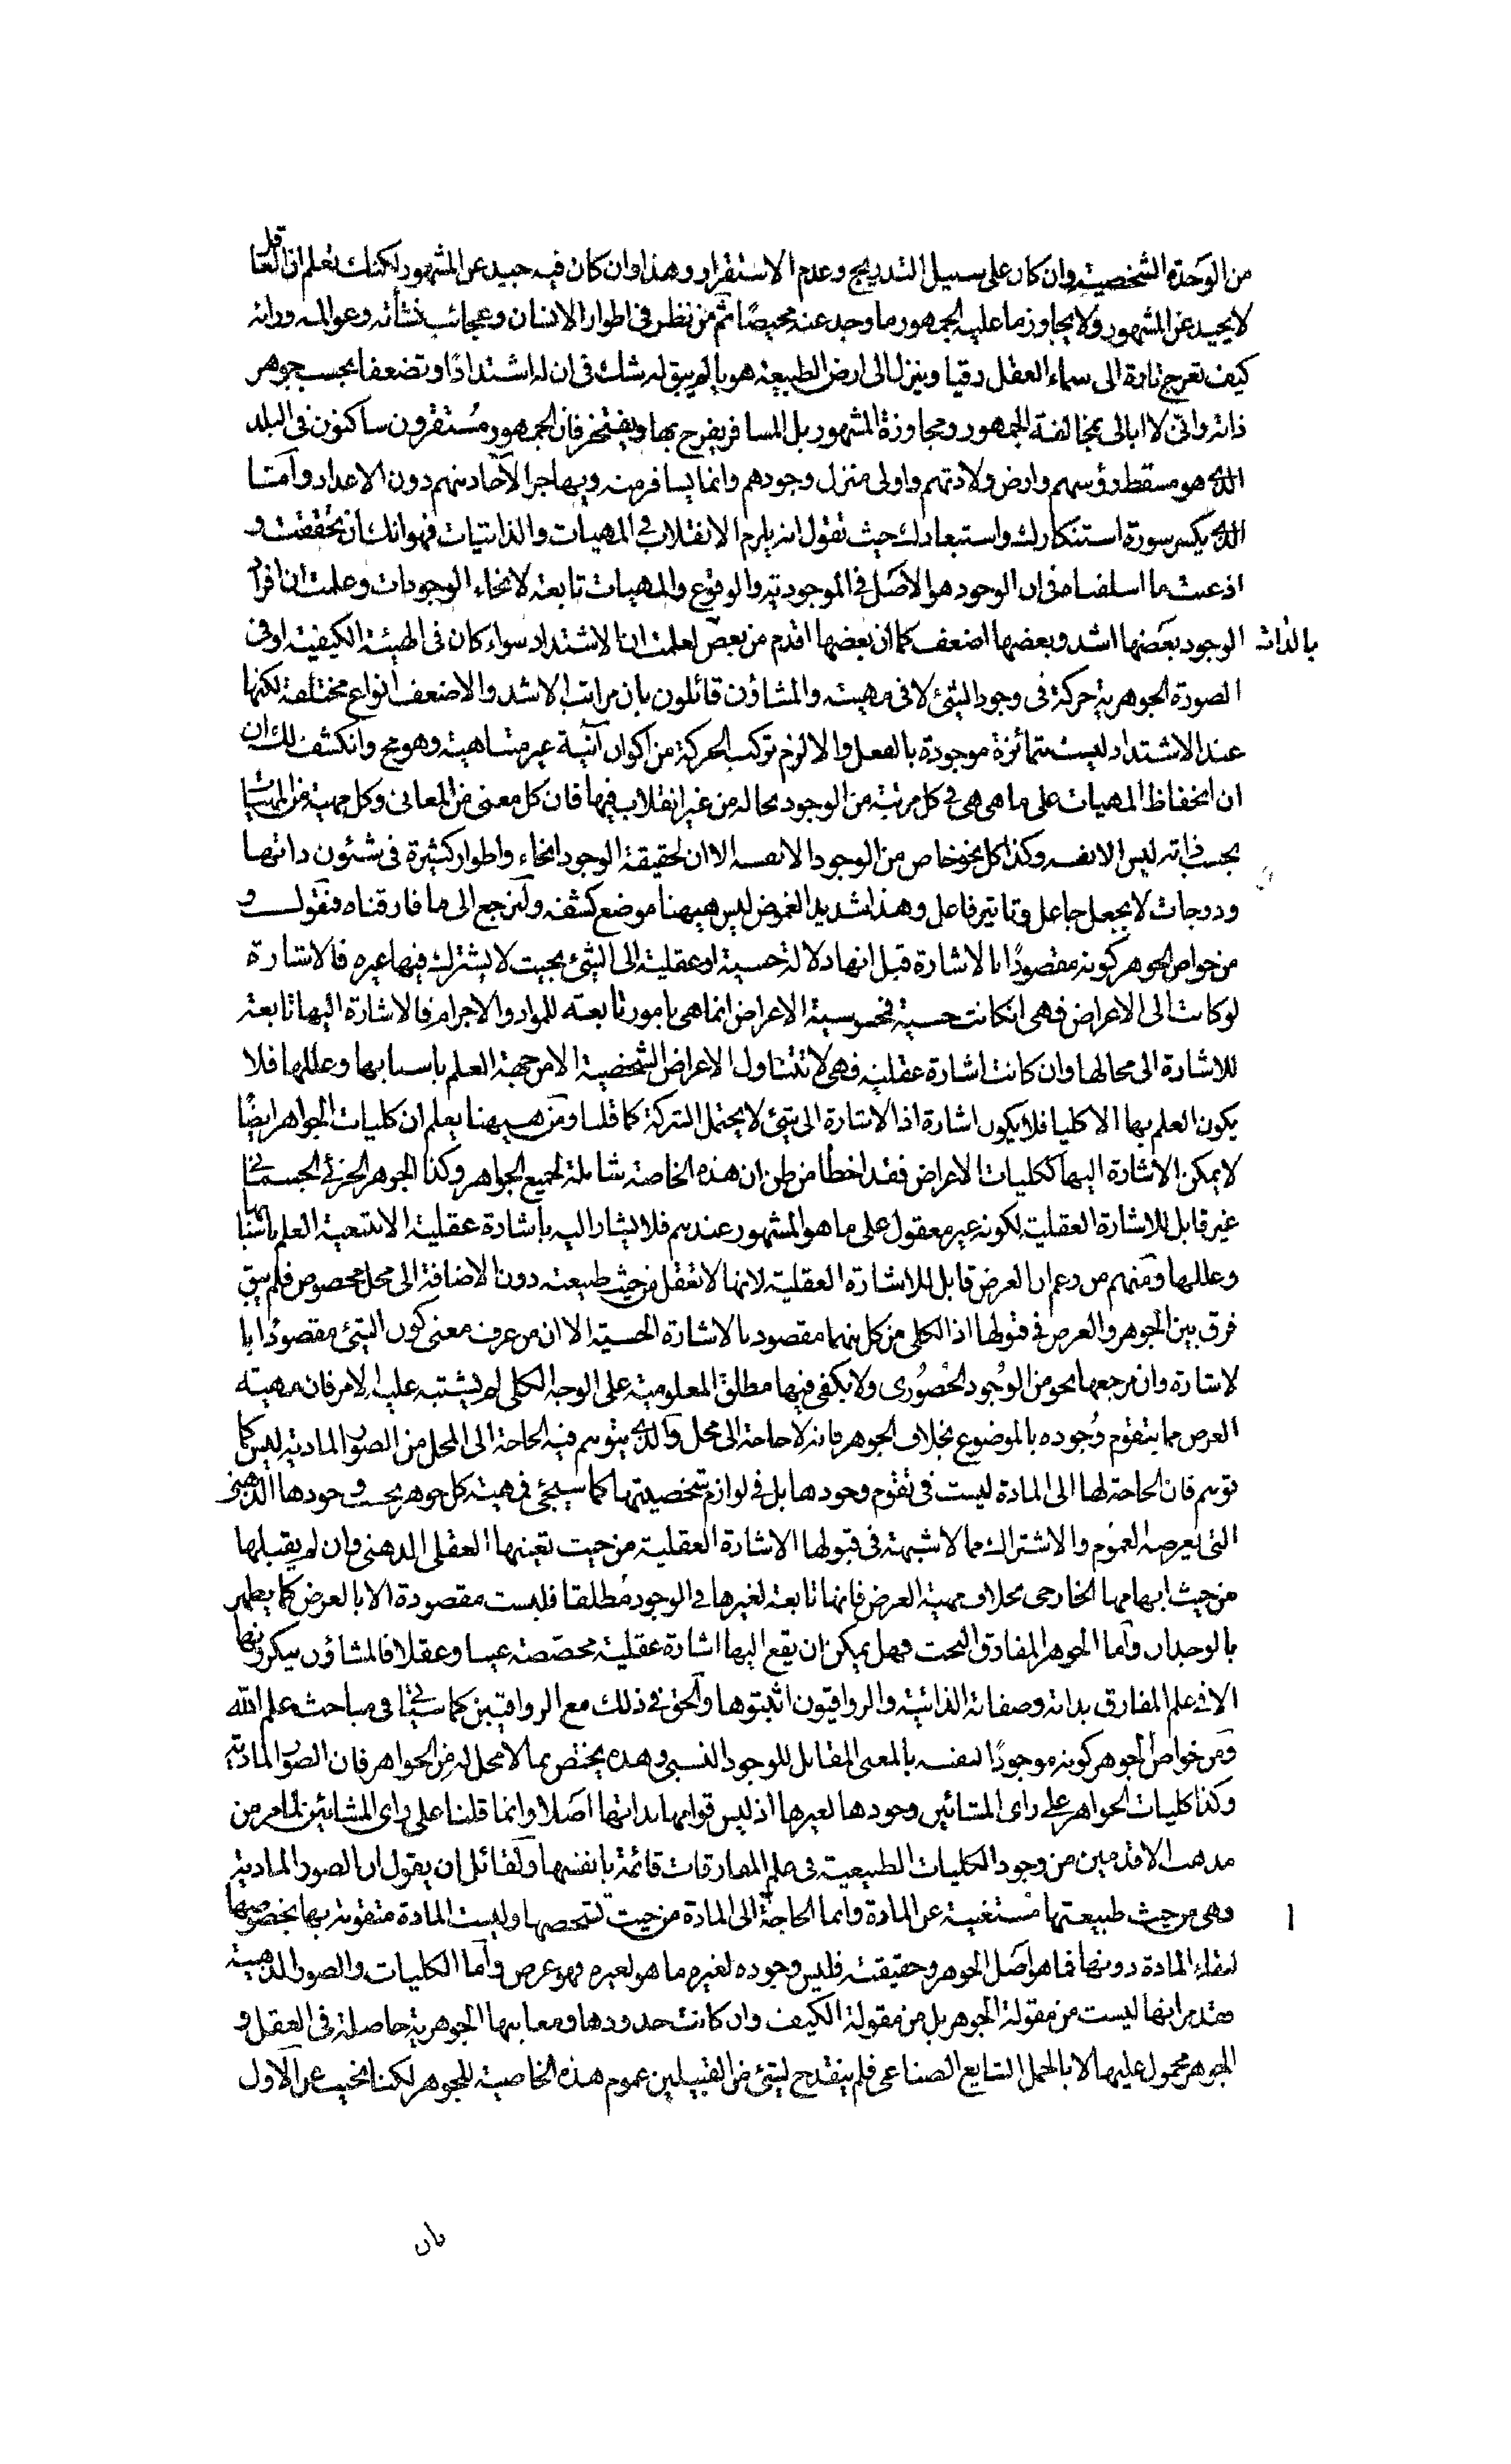 من الوحدة الشخصية وان كان على سبيل التدريج وعدم الاستقرار وهذا وان كان فيه حيد عن المشهور لكنك تعلم ان العاقل
لا يحيد عن المشهور ولا يجاوز ما عليه الجمهور ما وجد عنه محيصًا ثم من نظر فى اطوار الانسان وعجائب نشأته وعوالمه ورائه
كيف تعرج تارة الى سماء العقل رقيا وينزل الى ارض الطبيعة هويا لم يبق له شك فى ان له اشتدادًا وتضعفا بحسب جوهر
ذاته وانى لا ابالى بمخالفة الجمهور ومجاوزة المشهور بل المسافر يفرح بها ويفتخر فان الجمهور مُستقرون ساكنون فى البلد
الذى هو مسقط رؤسهم وارض ولادتهم واولى منزل وجودهم وانما يسافر منه ويهاجر الآحاد منهم دون الاعداد وامّا
الذى يكسر سورة استنكارك واستبعادك حيث تقول انه يلزم الانقلاب فى المهيات والذاتيات فهو انك ان تحققت و
اذعنت ما اسلفناه فى ان الوجود هو الاصل فى الموجودية والوقوع والمهيات تابعة لانحاء الوجودات وعلمت ان افراد
الوجود بعضها اشد وبعضها اضعف كما ان بعضها اقدم من بعض بالذات لعلمت ان الاشتداد سواء كان فى الهيئة الكيفية او فى
الصورة الجوهرية حركة فى وجود الشئ لا فى مهيته والمشاؤن قائلون بان مراتب الاشد والاضعف انواع مختلفة لكنها
عند الاشتداد ليست متمائزة موجودة بالفعل والا لزم تركب الحركة من اكوان آنية غير متناهية وهو مح وانكشف لك ان
ان انحفاظ المهيات على ما هى هى فى كل مرتبة من الوجود بحاله من غير انقلاب فيها فان كل معنى من المعانى وكل مهية من المهيات
بحسب ذاته ليس الا نفسه وكذا كل نحو خاص من الوجود الا نفسه الا ان لحقيقة الوجود انحاء واطوار كثيرة فى شئون ذاتها
ودرجات لا بجعل جاعل وتاثير فاعل وهذا شديد الغموض ليس ههنا موضع كشفه ولنرجع الى ما فارقناه فنقول و
من خواص الجوهر كونه مقصودًا بالاشارة قيل انها دلالة حسية او عقلية الى الشئ بحيث لا يشترك فيها غيره فالاشارة
لو كانت الى الاعراض فهى ان كانت حسية فمحسوسية الاعراض انما هى بامور تابعة للمواد والاجرام فالاشارة اليها تابعة
للاشارة الى محالها وان كانت اشارة عقلية فهى لا تتناول الاعراض الشخصية الا من جهة العلم باسبابها وعللها فلا
يكون العلم بها الا كليا فلا يكون اشارة اذ الاشارة الى شئ لا يحتمل الشركة كما قلنا ومن ههنا يعلم ان كليات الجواهر ايضًا
لا يمكن الاشارة اليها ككليات الاعراض فقد اخطأ من ظن ان هذه الخاصة شاملة لجميع الجواهر وكذا الجوهر الجزئى الجسمانى
غير قابل للاشارة العقلية لكونه غير معقول على ما هو المشهور عندهم فلا يشار اليه باشارة عقلية الا بتبعية العلم باسبابها
وعللها ومنهم من زعم ان العرض قابل للاشارة العقلية لانها لا تعقل من حيث طبيعته دون الاضافة الى محل مخصوص فلم يبق
فرق بين الجوهر والعرض فى قبولها اذ الكلى من كل منهما مقصود بالاشارة الحسية الا ان من عرف معنى كون الشئ مقصودًا با
لاشارة وان مرجعها نحو من الوُجود الحُضُورى ولا يكفى فيها مطلق المعلومية على الوجه الكلى لم يشتبه عليه الامر فان مهية
العرض مما يتقوم وُجوده بالموضوع بخلاف الجوهر فانه لا حاجة الى محل والذى يتوهم فيه الحاجة الى المحل من الصور المادية ليس كما
توهم فان الحاجة لها الى المادة ليست فى تقوم وجودها بل فى لوازم شخصيتها كما سيجئ فمهية كل جوهر بحسب وجودها الذهنى
التى يعرضه العموم والاشتراك مما لا شبهة فى قبولها الاشارة العقلية من حيث تعينها العقلى الذهنى وان لم يقبلها
من حيث ابهامها الخارجى بخلاف مهية العرض فانها تابعة لغيرها فى الوجود مُطلقا فليست مقصودة الا بالعرض كما يظهر
بالوجدان وامّا الجوهر المفارق البحت فهل يمكن ان يقع اليها اشارة عقلية مخصّصة عينا وعقلا فالمشاؤن ينكرونها
الا فى علم المفارق بذاته وصفاته الذاتية والرواقيون اثبتوها والحق فى ذلك مع الرواقيين كما سيأتى فى مباحث علم الله
ومن خواص الجوهر كونه موجودًا لنفسه بالمعنى المقابل للوجود النسبى وهذه يختص بما لا محل له من الجواهر فان الصور المادية
وكذا كليات الجواهر على راى المشائين وجودها لغيرها اذ ليس قوامها بذاتها اصلا وانما قلنا على راى المشائين لما مر من
مذهب الاقدمين من وجود الكليات الطبيعية فى عالم المفارقات قائمة بانفسها ولقائل ان يقول ان الصور المادية
وهى من حيث طبيعتها مُستغنية عن المادة وانما الحاجة الى المادة من حيث تشخصها وليست المادة متقومة بها بخصوصها
لبقاء المادة دونها فما هو اصل الجوهر وحقيقته فليس وجوده لغيره ما هو لغيره فهو عرض وامّا الكليات والصور الذهنية
فقد مر انها ليست من مقولة الجوهر بل من مقولة الكيف وان كانت حدودها ومعانيها الجوهرية حاصلة فى العقل و
الجوهر محمول عليها لا بالحمل الشايع الصناعى فلم ينقدح لشئ من القبيلين عموم هذه الخاصية للجوهر لكنا نجيب عن الاول
بان